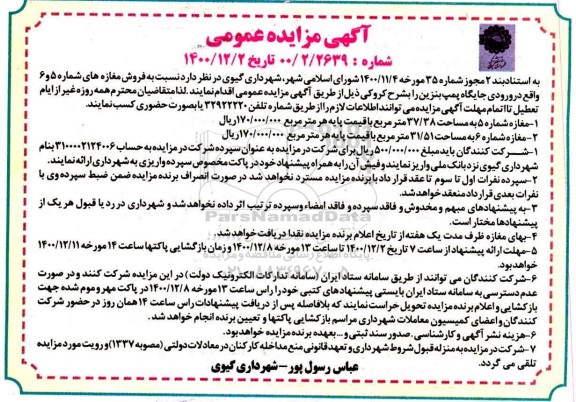 آگهی مزایده عمومی
شماره : ۰۰/۲/۲۶۳۹ تاریخ ۱۴۰۰/۱۲/۲
به استناد بند ۲ مجوز شماره ۳۵ مورخه ۱۴۰۰/۱۱/۴ شورای اسلامی شهر، شهرداری گیوی در نظر دارد نسبت به فروش مغازه های شماره ۵ و ۶
واقع در ورودی جایگاه پمپ بنزین را بشرح کروکی ذیل از طریق آگهی مزایده عمومی اقدام نمایند. لذا متقاضیان محترم همه روزه غیر از ایام
تعطیل تا اتمام مهلت آگهی مزایده می توانند اطلاعات لازم را از طریق شماره تلفن ۳۲۹۲۲۲۲۰ یا بصورت حضوری کسب نمایند.
۱-مغازه شماره ۵ به مساحت ۳۷/۳۸ متر مربع با قیمت پایه هر متر مربع ۱۷۰/۰۰۰/۰۰۰ ریال
۲-مغازه شماره ۶ به مساحت ۳۱/۵۱ متر مربع با قیمت پایه هر متر مربع ۱۷۰/۰۰۰/۰۰۰ ریال
۱-شرکت کنندگان باید مبلغ ۵۰۰/۰۰۰/۰۰۰ ریال برای شرکت در مزایده به عنوان سپرده شرکت در مزایده به حساب ۳۱۰۰۰۰۲۱۲۴۰۰۶ بنام
شهرداری گیوی نزد بانک ملی واریز نمایند و فیش آن را به همراه پیشنهاد خود در پاکت مخصوص سپرده واریزی به شهرداری ارائه نمایند.
۲-سپرده نفرات اول تا سوم تا عقد قرار داد با برنده مزایده مسترد نخواهد شد در صورت انصراف برنده مزایده ضمن ضبط سپرده وی با
نفرات بعدی قرار داد منعقد خواهد شد.
۳-به پیشنهادهای مبهم و مخدوش و فاقد سپرده و فاقد امضاء و سپرده ترتیب اثر داده نخواهد شد و شهرداری در رد یا قبول هر یک از
پیشنهادها مختار است.
۴-بهای مغازه ظرف مدت یک هفته از تاریخ اعلام برنده مزایده نقدا دریافت خواهد شد.
۵-مهلت ارائه پیشنهاد از ساعت ۷ تاریخ ۱۴۰۰/۱۲/۲ تا ساعت ۱۳ مورخه ۱۴۰۰/۱۲/۸ و زمان بازگشایی پاکتها ساعت ۱۴ مورخه ۱۴۰۰/۱۲/۱۱
خواهد بود.
۶-شرکت کنندگان می توانند از طریق سامانه ستاد ایران (سامانه تدارکات الکترونیک دولت) در این مزایده شرکت کنند و در صورت
عدم دسترسی به سامانه ستاد ایران بایستی پیشنهادهای کتبی خود را راس ساعت ۱۳ مورخه ۱۴۰۰/۱۲/۸ در پاکت مهر و موم شده جهت
بازگشایی و اعلام برنده مزایده تحویل حراست نمایند که بلافاصله پس از دریافت پیشنهادات راس ساعت ۱۴ همان روز در حضور شرکت
کنندگان و اعضای کمیسیون معاملات شهرداری مراسم بازگشایی پاکتها و تعیین برنده انجام خواهد شد.
۶-هزینه نشر آگهی و کارشناسی، صدور سند ثبتی و... بعهده برنده مزایده خواهد بود.
۷-شرکت در مزایده به منزله قبول شروط شهرداری و تعهد قانونی منع مداخله کارکنان در معادلات دولتی (مصوبه ۱۳۳۷) و رویت مورد مزایده
تلقی می گردد.
عباس رسول پور - شهرداری گیوی
ParsNamadData